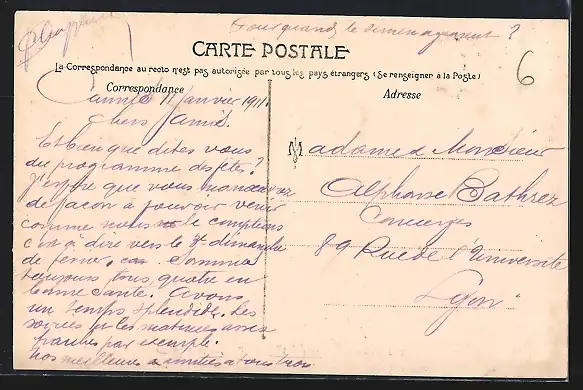 Pour quand le déménagement ?
CARTE POSTALE
La Correspondance au recto n'est pas autorisée par tous les pays étrangers (Se renseigner à la Poste)
6
Correspondance
Adresse
11 Janvier 1911
Chers Amis.
Et bien que dites vous
du programme des fêtes ?
J'espère que vous
de façon à pouvoir venir
comme nous le comptions
c'est à dire vers le dimanche
de février. Sommes
toujours tous quatre en
bonne santé. Avons
un temps splendide. Les
soirées et les matinées assez
fraiches par exemple.
Nos meilleures amitiés à tous trois
Madame & Monsieur
Alphonse Bathrez
Concierges
89 Rue de l'Université
Lyon